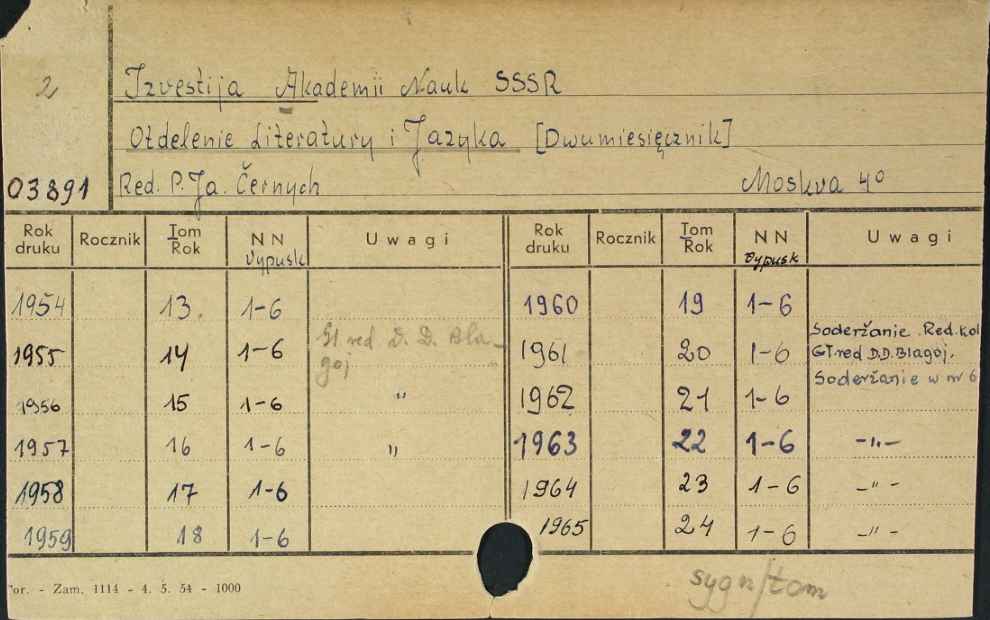 2
Izvestija Akademii Nauk SSSR
Otdelenie Literatury i Jazyka [Dwumiesięcznik]
03891 Red. P. Ja. Černych Moskva 4º
Rok druku Rocznik Tom Rok NN vypusk Uwagi Rok druku Rocznik Tom Rok NN vypusk Uwagi
1954 13. 1-6 1960 19 1-6
1955 14 1-6 Gł red. D. D. Blagoj 1961 20 1-6 Soderžanie Red. kol
Gł red D.D. Blagoj.
Soderžanie w nr 6
1956 15 1-6 " 1962 21 1-6
1957 16 1-6 " 1963 22 1-6 -"-
1958 17 1-6 1964 23 1-6 -"-
1959 18 1-6 1965 24 1-6 -"-
Tor. - Zam. 1114 - 4. 5. 54 - 1000
sygn/tom